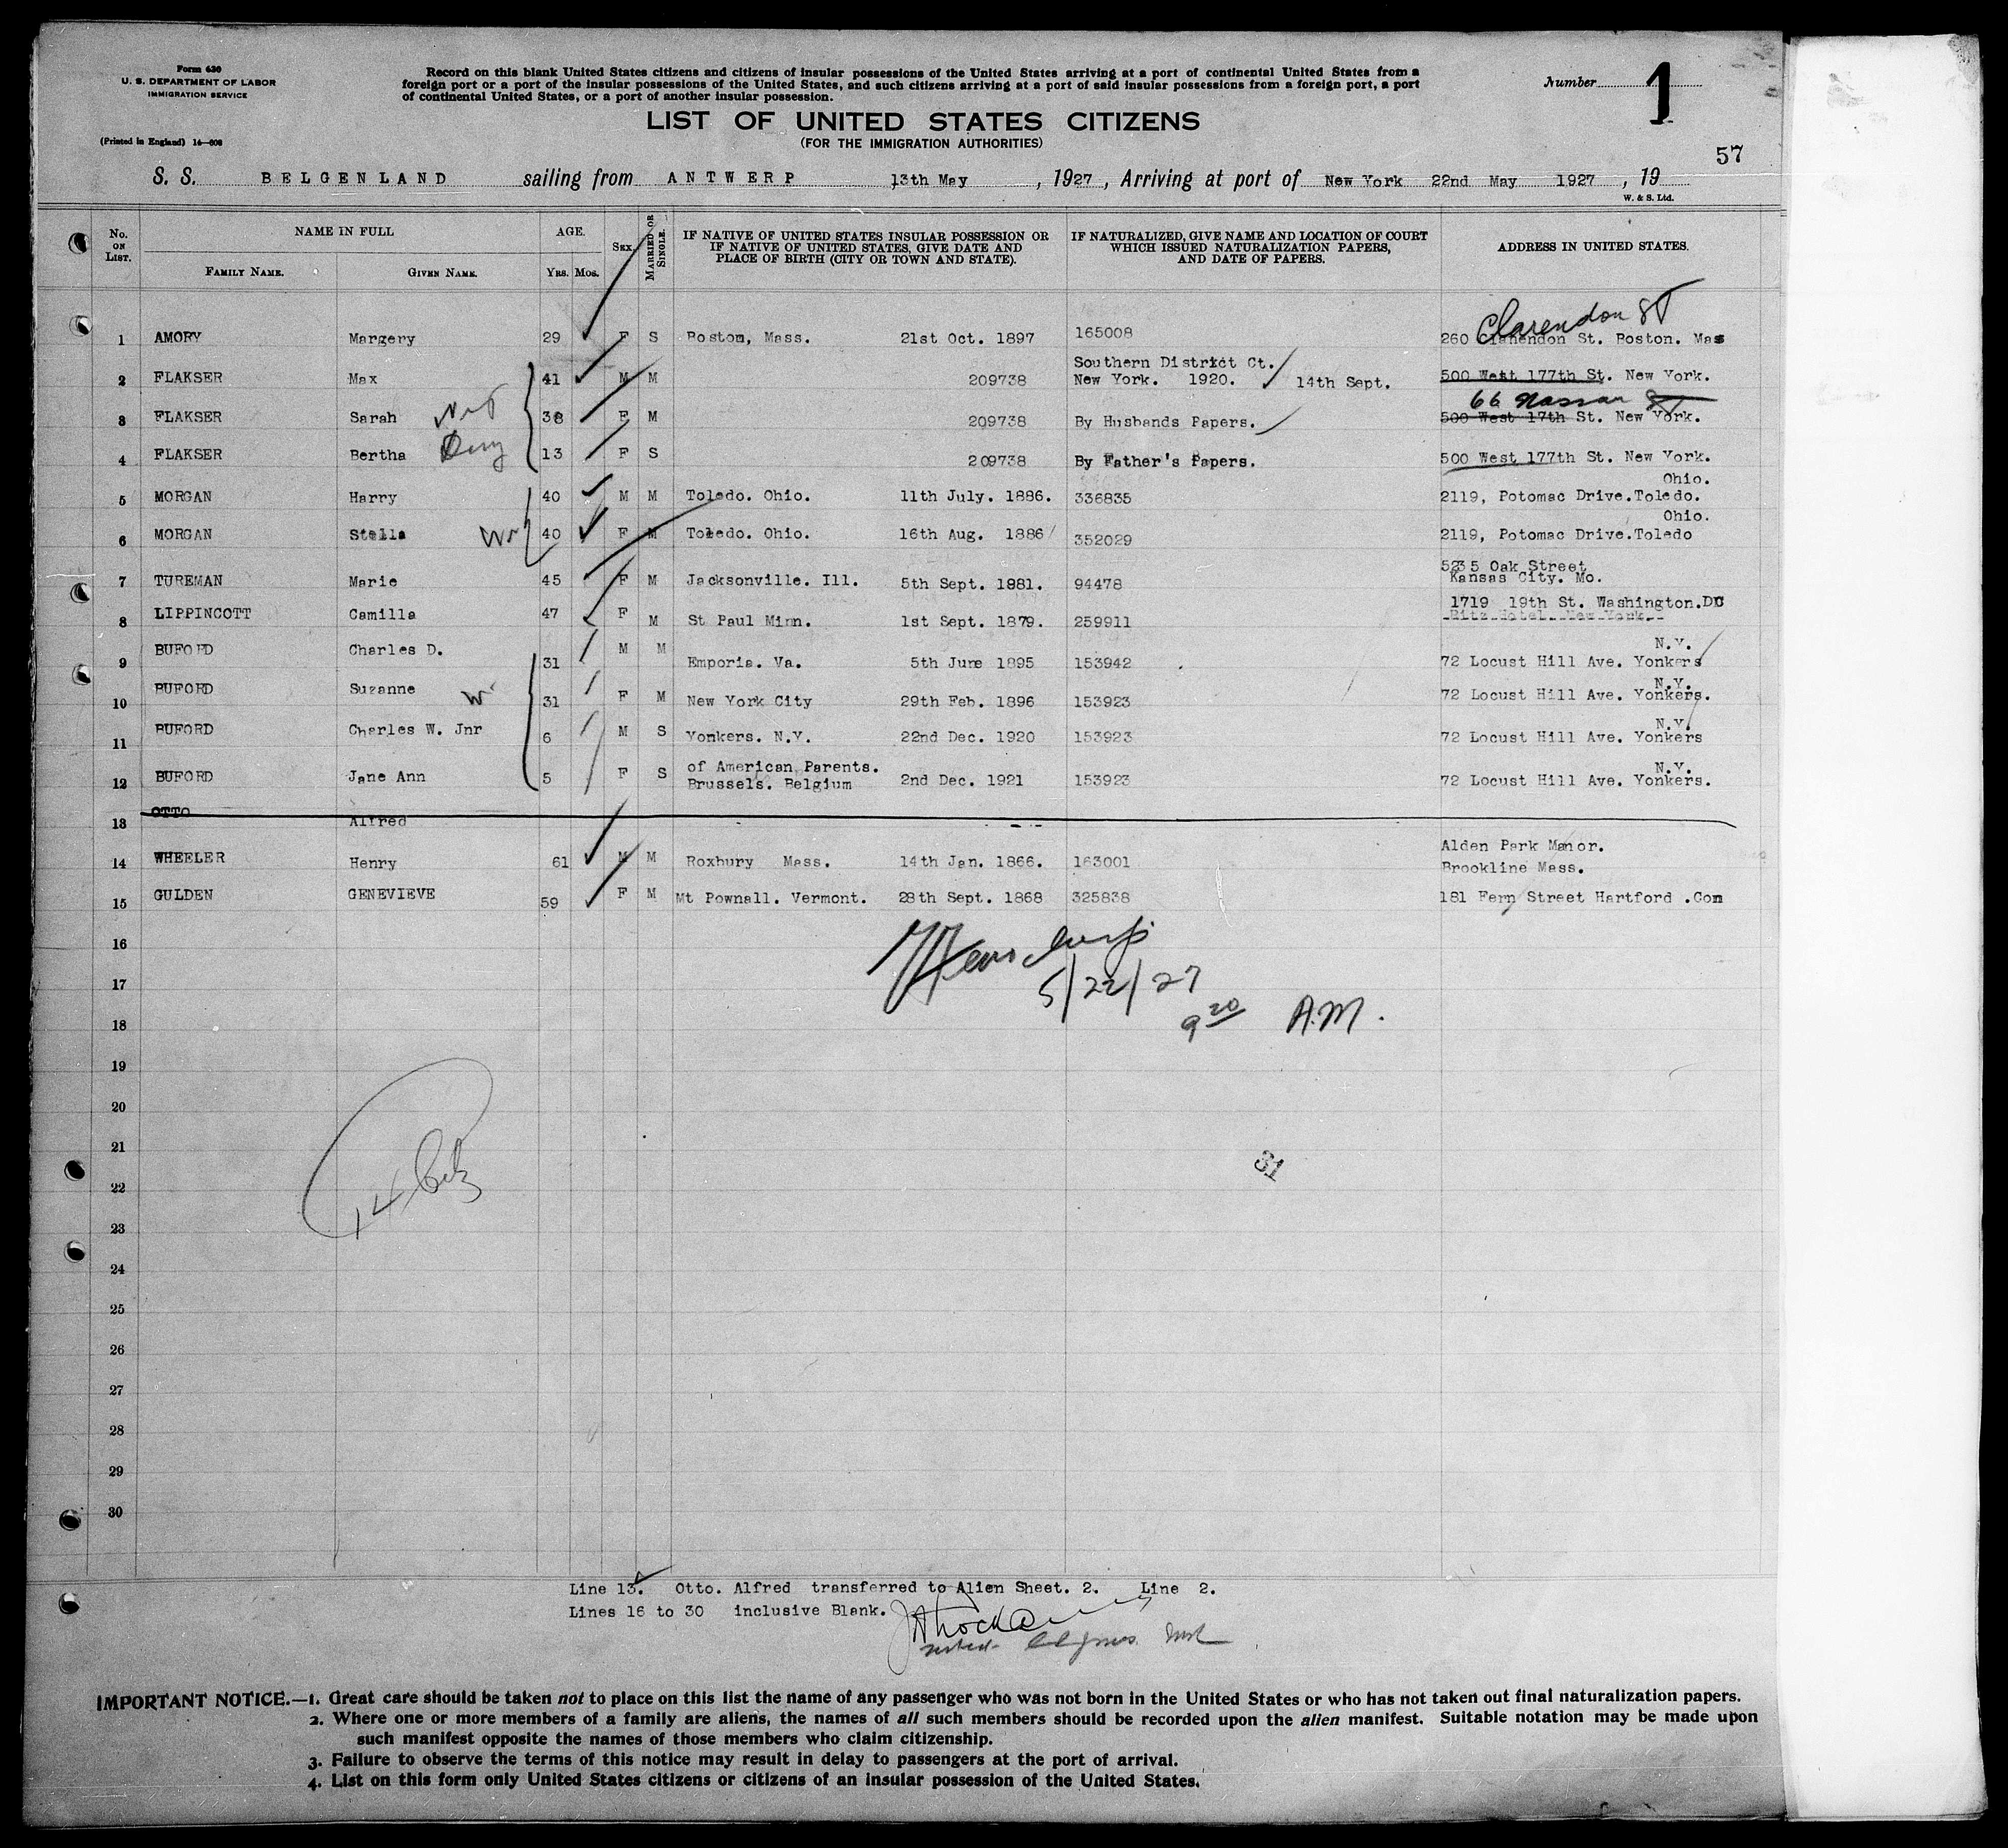 Form 630
U. S. DEPARTMENT OF LABOR
IMMIGRATION SERVICE
(Printed in England) 14—608
Record on this blank United States citizens and citizens of insular possessions of the United States arriving at a port of continental United States from a
foreign port or a port of the insular possessions of the United States, and such citizens arriving at a port of said insular possessions from a foreign port, a port
of continental United States, or a port of another insular possession.
Number 1
LIST OF UNITED STATES CITIZENS
(FOR THE IMMIGRATION AUTHORITIES)
57
S. S. BELGENLAND sailing from ANTWERP 13th May, 1927, Arriving at port of New York 22nd May 1927, 19
W. & S. Ltd.
No. ON LIST. NAME IN FULL AGE. SEX. MARRIED OR SINGLE. IF NATIVE OF UNITED STATES INSULAR POSSESSION OR IF NATIVE OF UNITED STATES, GIVE DATE AND PLACE OF BIRTH (CITY OR TOWN AND STATE). IF NATURALIZED, GIVE NAME AND LOCATION OF COURT WHICH ISSUED NATURALIZATION PAPERS, AND DATE OF PAPERS. ADDRESS IN UNITED STATES.
FAMILY NAME. GIVEN NAME. YRS. MOS.
Clarendon ST
1 AMORY Margery 29 F S Boston, Mass. 21st Oct. 1897 165008 260 Clarendon St. Boston. Mas
2 FLAKSER Max 41 M M 209738 Southern District Ct. New York. 1920. 14th Sept. 500 West 177th St. New York.
66 Nassau ST
3 FLAKSER Sarah 38 F M 209738 By Husbands Papers. 500 West 17th St. New York.
4 FLAKSER Bertha 13 F S 209738 By Father's Papers. 500 West 177th St. New York.
5 MORGAN Harry 40 M M Toledo. Ohio. 11th July. 1886. 336835 2119, Potomac Drive.Toledo. Ohio.
6 MORGAN Stella 40 F M Toledo. Ohio. 16th Aug. 1886 352029 2119, Potomac Drive.Toledo Ohio.
7 TUREMAN Marie 45 F M Jacksonville. Ill. 5th Sept. 1881. 94478 5235 Oak Street Kansas City. Mo.
8 LIPPINCOTT Camilla 47 F M St Paul Minn. 1st Sept. 1879. 259911 1719 19th St. Washington.DC
Ritz Hotel. New York.
9 BUFORD Charles D. 31 M M Emporia. Va. 5th June 1895 153942 72 Locust Hill Ave. Yonkers N.Y.
10 BUFORD Suzanne W 31 F M New York City 29th Feb. 1896 153923 72 Locust Hill Ave. Yonkers. N.Y.
11 BUFORD Charles W. Jnr 6 M S Yonkers. N.Y. 22nd Dec. 1920 153923 72 Locust Hill Ave. Yonkers N.Y.
12 BUFORD Jane Ann 5 F S of American Parents. Brussels. Belgium 2nd Dec. 1921 153923 72 Locust Hill Ave. Yonkers. N.Y.
13 OTTO Alfred
14 WHEELER Henry 61 M M Roxbury Mass. 14th Jan. 1866. 163001 Alden Park Manor. Brookline Mass.
15 GULDEN GENEVIEVE 59 F M Mt Pownall. Vermont. 28th Sept. 1868 325838 181 Fern Street Hartford .Con
16
17
5/22/27
18
9 20 A.M.
19
20
21
31
22
23
24
25
26
27
28
29
30
Line 13. Otto. Alfred transferred to Alien Sheet. 2. Line 2.
Lines 16 to 30 inclusive Blank.
IMPORTANT NOTICE.—1. Great care should be taken not to place on this list the name of any passenger who was not born in the United States or who has not taken out final naturalization papers.
2. Where one or more members of a family are aliens, the names of all such members should be recorded upon the alien manifest. Suitable notation may be made upon
such manifest opposite the names of those members who claim citizenship.
3. Failure to observe the terms of this notice may result in delay to passengers at the port of arrival.
4. List on this form only United States citizens or citizens of an insular possession of the United States.